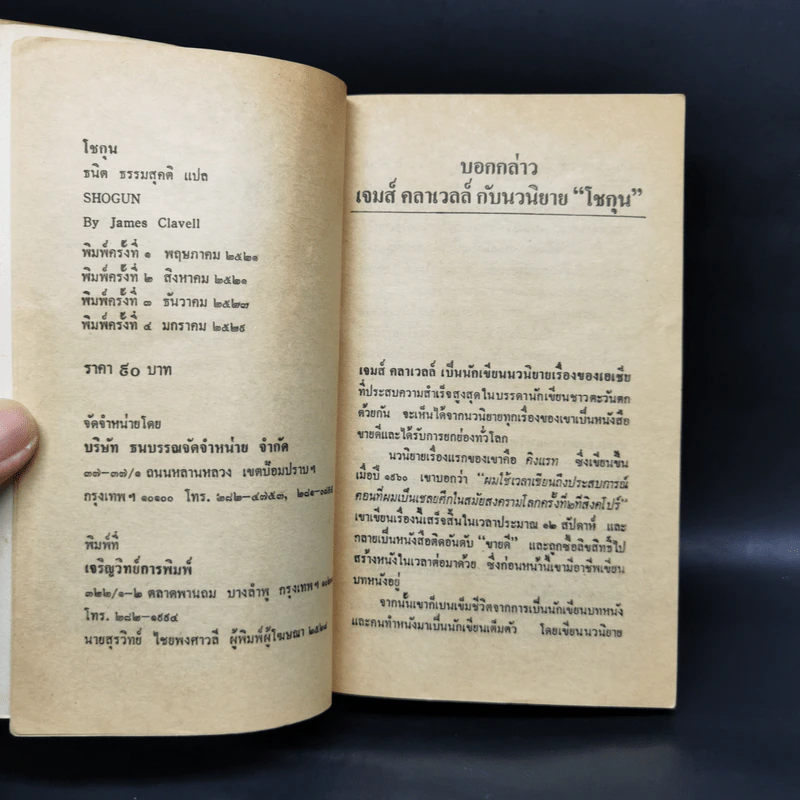 โชกุน
ธนิต ธรรมสุคติ แปล
SHOGUN
By James Clavell
พิมพ์ครั้งที่ ๑ พฤษภาคม ๒๕๒๑
พิมพ์ครั้งที่ ๒ สิงหาคม ๒๕๒๑
พิมพ์ครั้งที่ ๓ ธันวาคม ๒๕๒๗
พิมพ์ครั้งที่ ๔ มกราคม ๒๕๒๙
ราคา ๕๐ บาท
จัดจำหน่ายโดย
บริษัท ธนบรรณจัดจำหน่าย จำกัด
๓๗-๓๗/๑ ถนนหลานหลวง เขตป้อมปราบฯ
กรุงเทพฯ ๑๐๑๐๐ โทร. ๒๘๒-๔๗๕๓,
พิมพ์ที่
เจริญวิทย์การพิมพ์
๓๒๒/๑-๒ ตลาดพานถม บางลำพู กรุงเทพฯ
โทร. ๒๘๒-๑๙๙๔
นายสุรวิทย์ ไชยพงศาวลี ผู้พิมพ์ผู้โฆษณา
บอกกล่าว
เจมส์ คลาเวลล์ กับนวนิยาย “โชกุน”
เจมส์ คลาเวลล์ เป็นนักเขียนนวนิยายเรื่องของเอเชีย
ที่ประสบความสำเร็จสูงสุดในบรรดานักเขียนชาวตะวันตก
ด้วยกัน จะเห็นได้จากนวนิยายทุกเรื่องของเขาเป็นหนังสือ
ขายดีและได้รับการยกย่องทั่วโลก
นวนิยายเรื่องแรกของเขาคือ คิงแรท ซึ่งเขียนขึ้น
เมื่อปี ๑๙๖๐ เขาบอกว่า “ผมใช้เวลาเขียนถึงประสบการณ์
ตอนที่ผมเป็นเชลยศึกในสมัยสงครามโลกครั้งที่๒ที่สิงคโปร์”
เขาเขียนเรื่องนี้เสร็จสิ้นในเวลาประมาณ ๑๒ สัปดาห์ และ
กลายเป็นหนังสือติดอันดับ “ขายดี” และถูกซื้อลิขสิทธิ์ไป
สร้างหนังในเวลาต่อมาด้วย ซึ่งก่อนหน้านี้เขามีอาชีพเขียน
บทหนังอยู่
จากนั้นเขาก็เบนเข็มชีวิตจากการเป็นนักเขียนบทหนัง
และคนทำหนังมาเป็นนักเขียนเต็มตัว โดยเขียนนวนิยาย